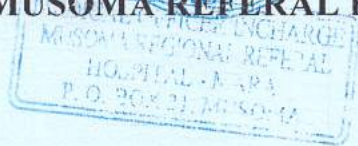 MUSOMA REFERAL
OFFICER INCHARGE
MUSOMA REGIONAL REFERAL
HOSPITAL - MARA
P. O. BOX 21, MUSOMA